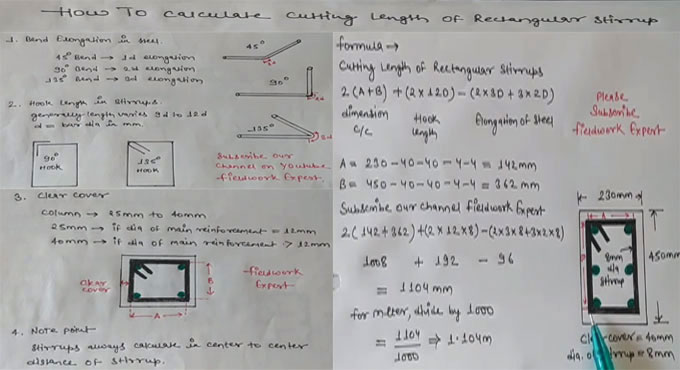 How To calculate Cutting Length of Rectangular Stirrup
1. Bend Elongation in steel.
45° Bend → 1d elongation
90° Bend → 2d elongation
135° Bend → 3d elongation
45°
90°
135°
2. Hook length in Stirrups.
generally length varies 9d to 12d
d = bar dia in mm.
90°
HOOK
135°
HOOK
Subscribe our
Channel on Youtube
fieldwork Expert.
3. Clear cover
Column → 25mm to 40mm
25mm → if dia of main reinforcement = 12mm
40mm → if dia of main reinforcement > 12mm
Clear
cover
A
B
fieldwork
Expert
4. Note point
Stirrups always calculate in center to center
distance of stirrup.
formula →
Cutting Length of Rectangular Stirrups
2(A+B) + (2x12D) - (2x3D + 3x2D)
dimension
C/C
Hook
length
Elongation of steel
Please
Subscribe
fieldwork Expert
A = 230-40-40-4-4 = 142mm
B = 450-40-40-4-4 = 362mm
Subscribe our channel fieldwork Expert
2(142+362)+(2x12x8)-(2x3x8+3x2x8)
1008 + 192 - 96
= 1104 mm
for meter, divide by 1000
= 1104/1000 ⇒ 1.104m
230mm
A
B
8mm
dia
stirrup
450mm
cover = 40mm
dia. of = 8mm